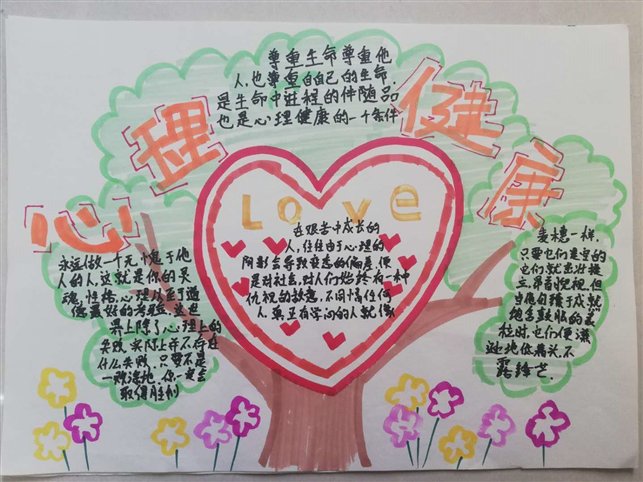 心理健康
尊重生命尊重他
人,也尊重自己的生命,
是生命中进程的伴随品
也是心理健康的一个条件
Love
在艰苦中成长的
人,往往由于心理的
阴影会导致变态的偏差,便
是对社会,对人们始终有一种
仇视的敌意,不同情任何
人,真正有学问的人就像
永远做一个无愧于他
人的人,这就是你的灵
魂,性格,心理从至于道
德最好的考验,这世
界上除了心理上的
失败,实际上并不存在
什么失败,只要不是
一败涂地,你一定会
取得胜利
麦穗一样,
只要它们是空的
它们就茁壮挺
立,昂首 视,但
当 臻于成熟
饱含鼓胀的麦
粒时,它们便谦
逊地低着头,不
露锋芒.